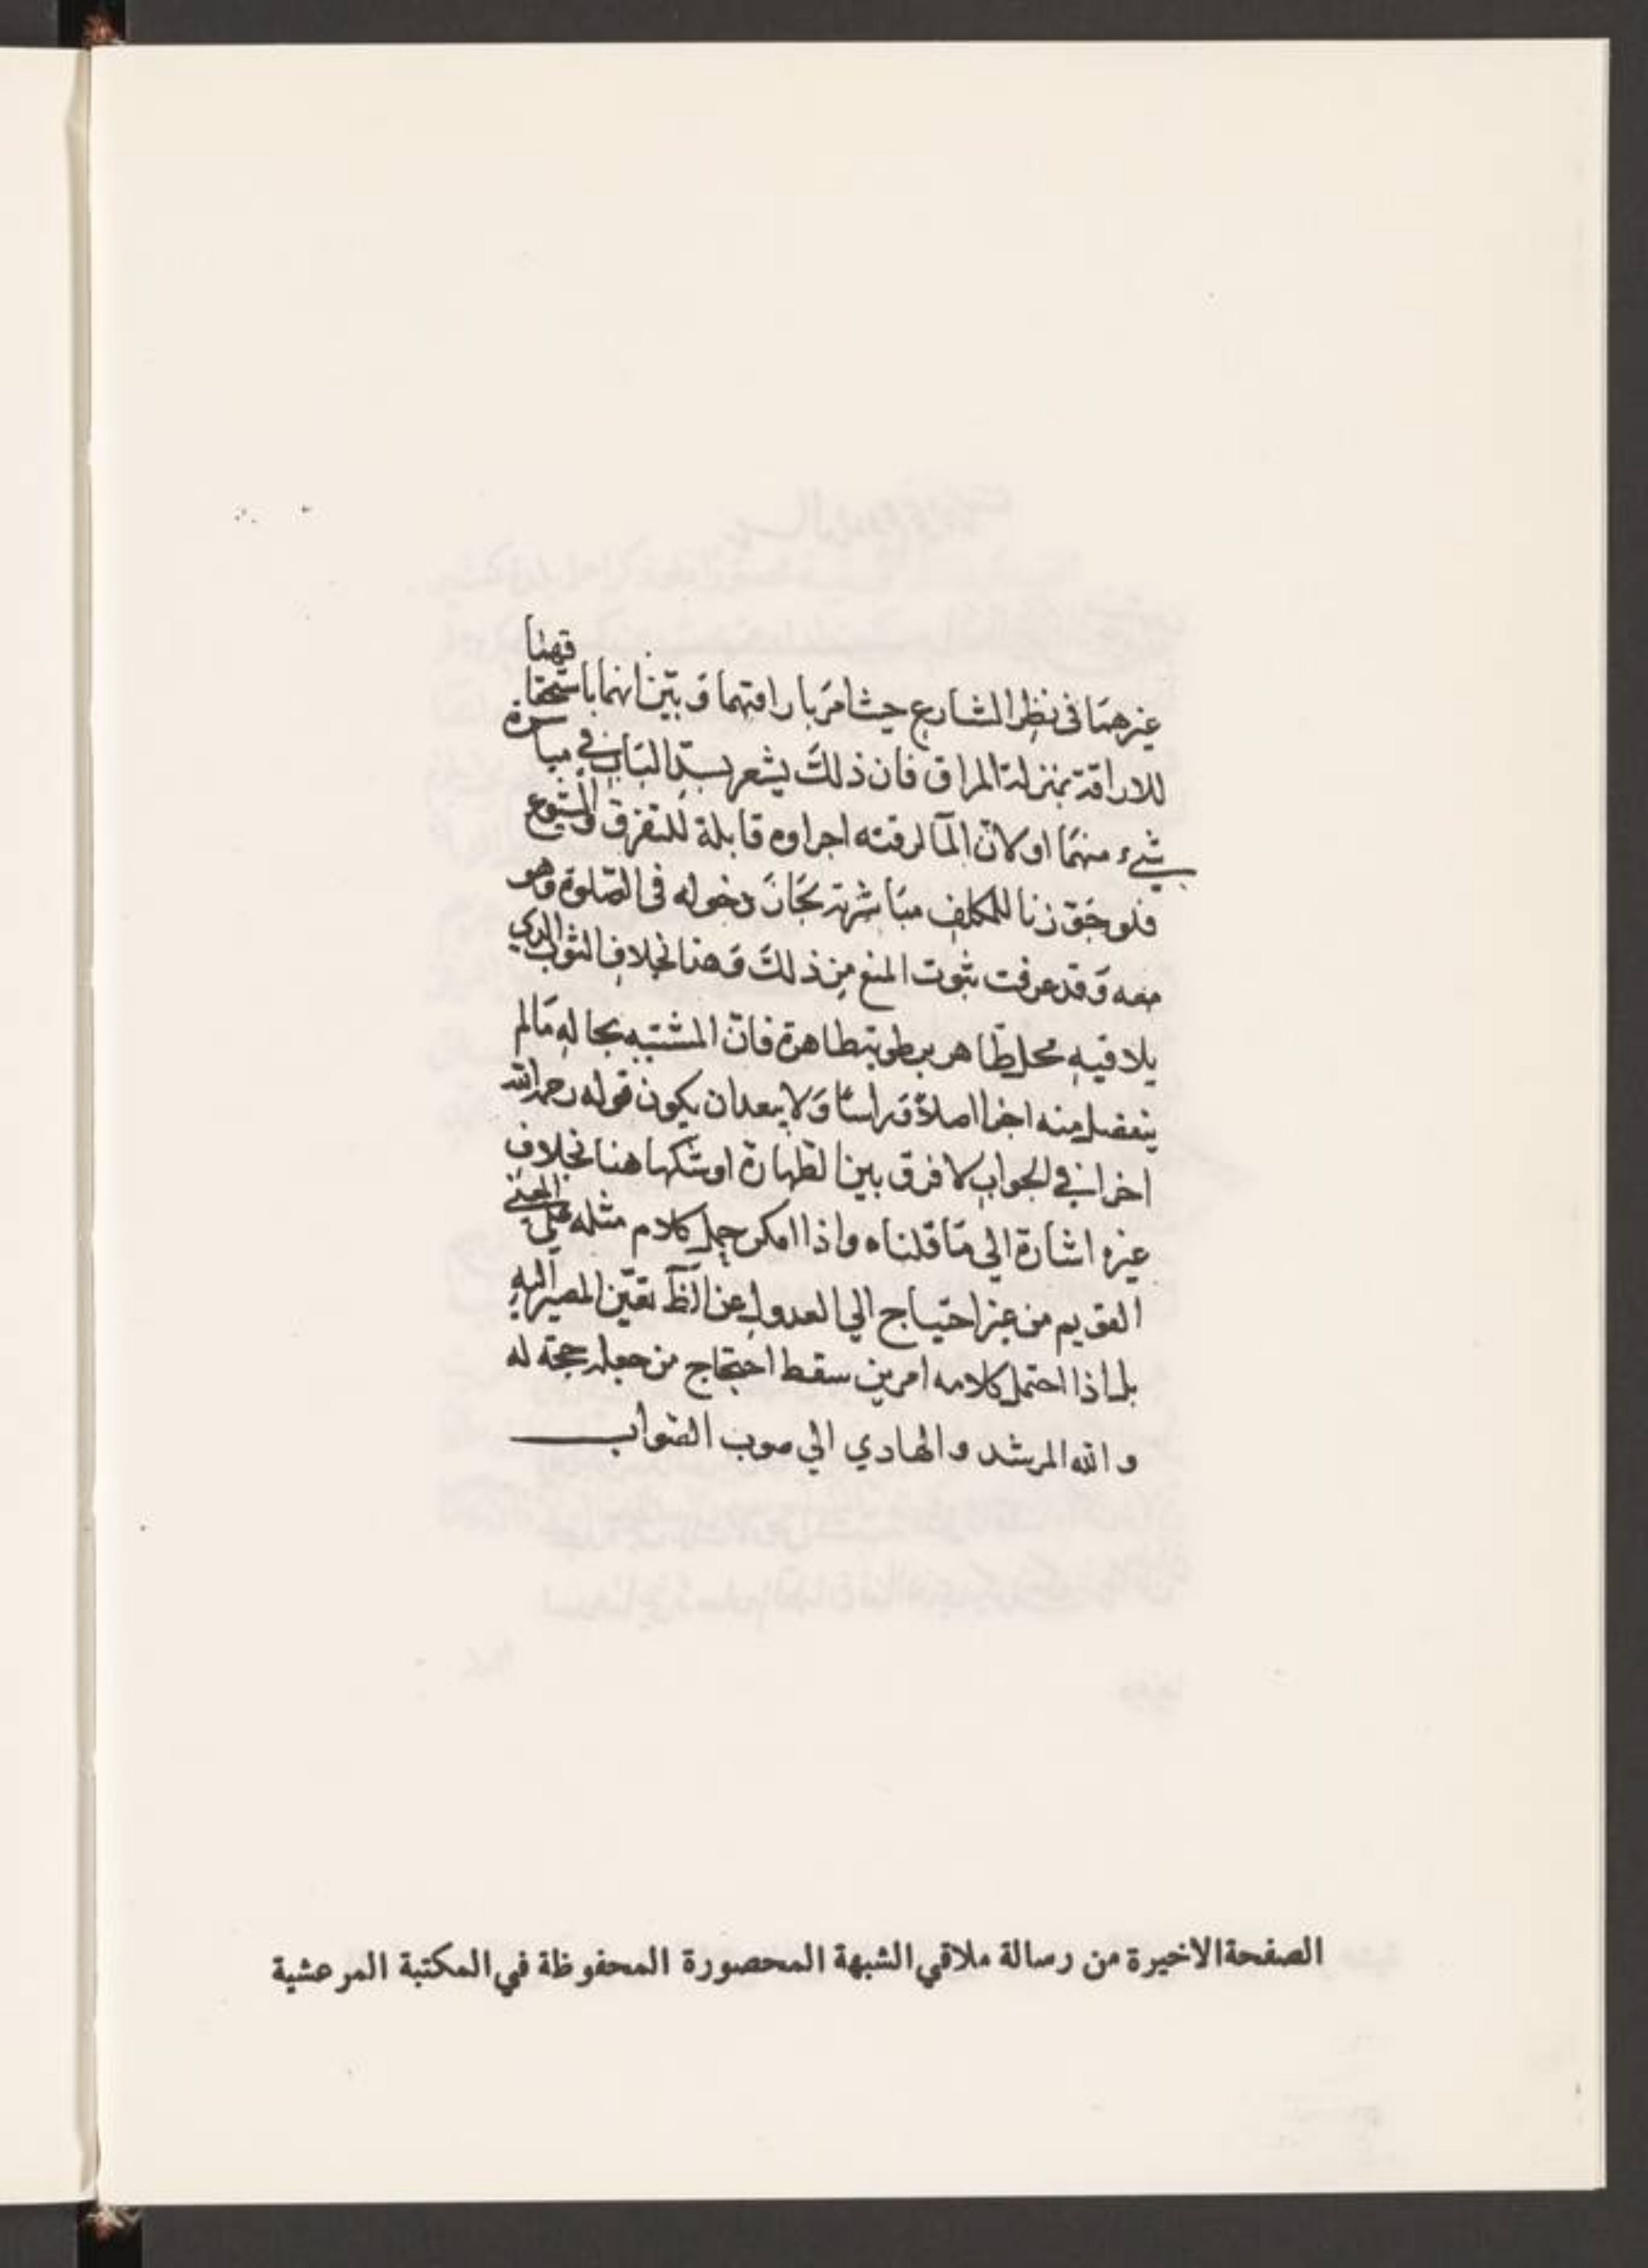 غيرهما فى نظر الشارع حيث امر باراقتهما و بيّن انهما باستحقاقهما
للاراقة بمنزلة المراق فان ذلك يشعر بسدّ الباب في مباشرة
شيء منهما او لانّ المآ لرقته اجزاوه قابلة للتفرق والشيوع
فلو جوّزنا للمكلف مباشرته لجاز دخوله فى الصّلوة وهو
معه و قد عرفت ثبوت المنع من ذلك و هذا بخلاف الثوب الذي
يلاقيه محل طاهر برطوبة طاهرة فانّ المشتبه بحاله ما لم
ينفصل منه اجزا اصلاً و راسًا و لا يبعد ان يكون قوله رحمه الله
اخرا في الجواب لا فرق بين الطهارة او شكها هنا بخلاف
غيره اشارة الي ما قلناه واذا امكن حمل كلام مثله على المعنى
القويم من غير احتياج الي العدول عن الظ تعيّن المصير اليه
بل اذا احتمل كلامه امرين سقط احتجاج من جعله حجة له
و الله المرشد و الهادي الي صوب الصّواب
الصفحة الاخيرة من رسالة ملاقي الشبهة المحصورة المحفوظة في المكتبة المرعشية